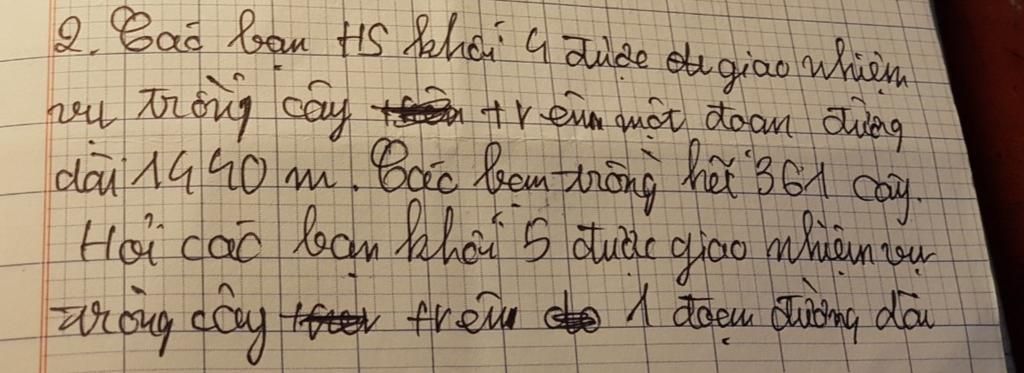 2. Các bạn HS khối 4 được giao nhiệm
vụ trồng cây trên một đoạn đường
dài 1440 m. Các bạn trồng hết 361 cây.
Hỏi các bạn khối 5 được giao nhiệm vụ
trồng cây trên 1 đoạn đường dài